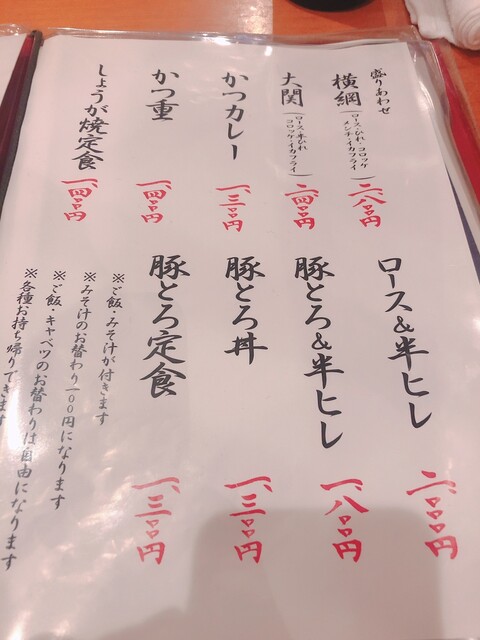 盛りあわせ
横綱
(ロース・ひれ・コロッケ
メンチ・イカフライ)
二、八〇〇円
大関
(ロース・半ひれ
コロッケ・イカフライ)
二、四〇〇円
かつカレー
一、三〇〇円
かつ重
一、四〇〇円
しょうが焼定食
一、四〇〇円
ロース&半ヒレ
二、〇〇〇円
豚とろ&半ヒレ
一、八〇〇円
豚とろ丼
一、三〇〇円
豚とろ定食
一、三〇〇円
※ご飯・みそ汁が付きます
※みそ汁のお替わり一〇〇円になります
※ご飯・キャベツのお替わりは自由になります
※各種お持ち帰りできます